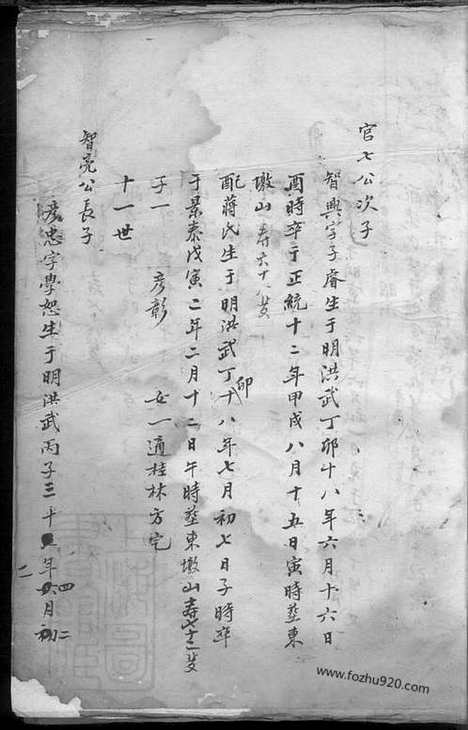 官七公次子
智典字子睿生于明洪武丁卯十八年六月十六日
酉時卒于正統十二年甲戌八月十五日寅時塟東
墩山壽六十八岁
配蔣氏生于明洪武丁卯十八年七月初七日子時卒
于景泰戊寅二年二月十二日午時塟東墩山壽七十二岁
子一 彦彰 女一適桂林方宅
十一世
智亮公長子
彦忠字學恕生于明洪武丙子三十年四月初二
www.fozhu920.com